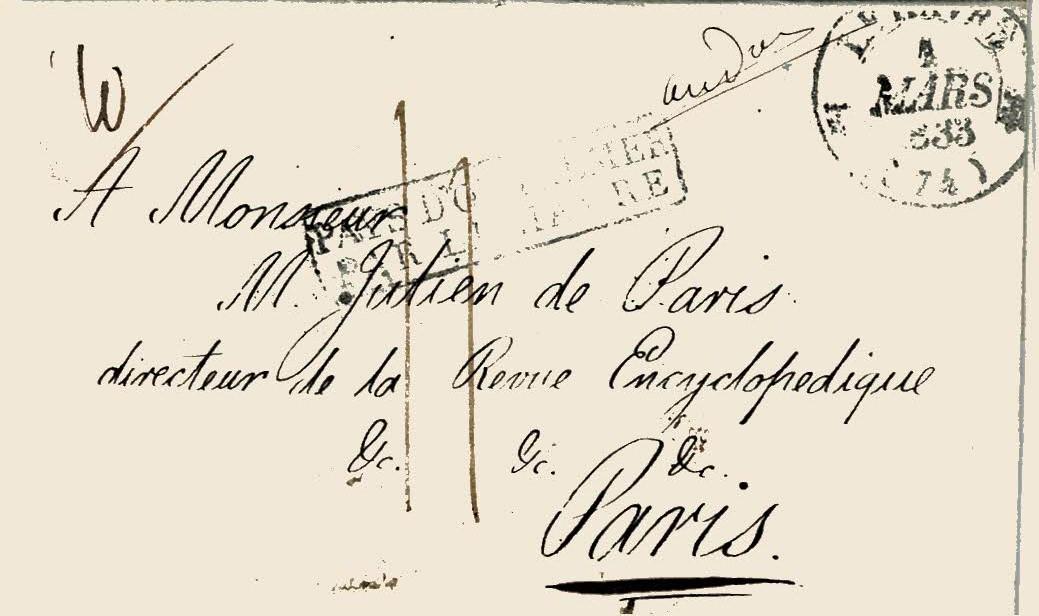 LE HAVRE
4
MARS
1833
(74)
PAYS D'OUTREMER
PAR LE HAVRE
A Monsieur
M. Jullien de Paris
directeur de la Revue Encyclopedique
&c. &c. &c.
Paris.